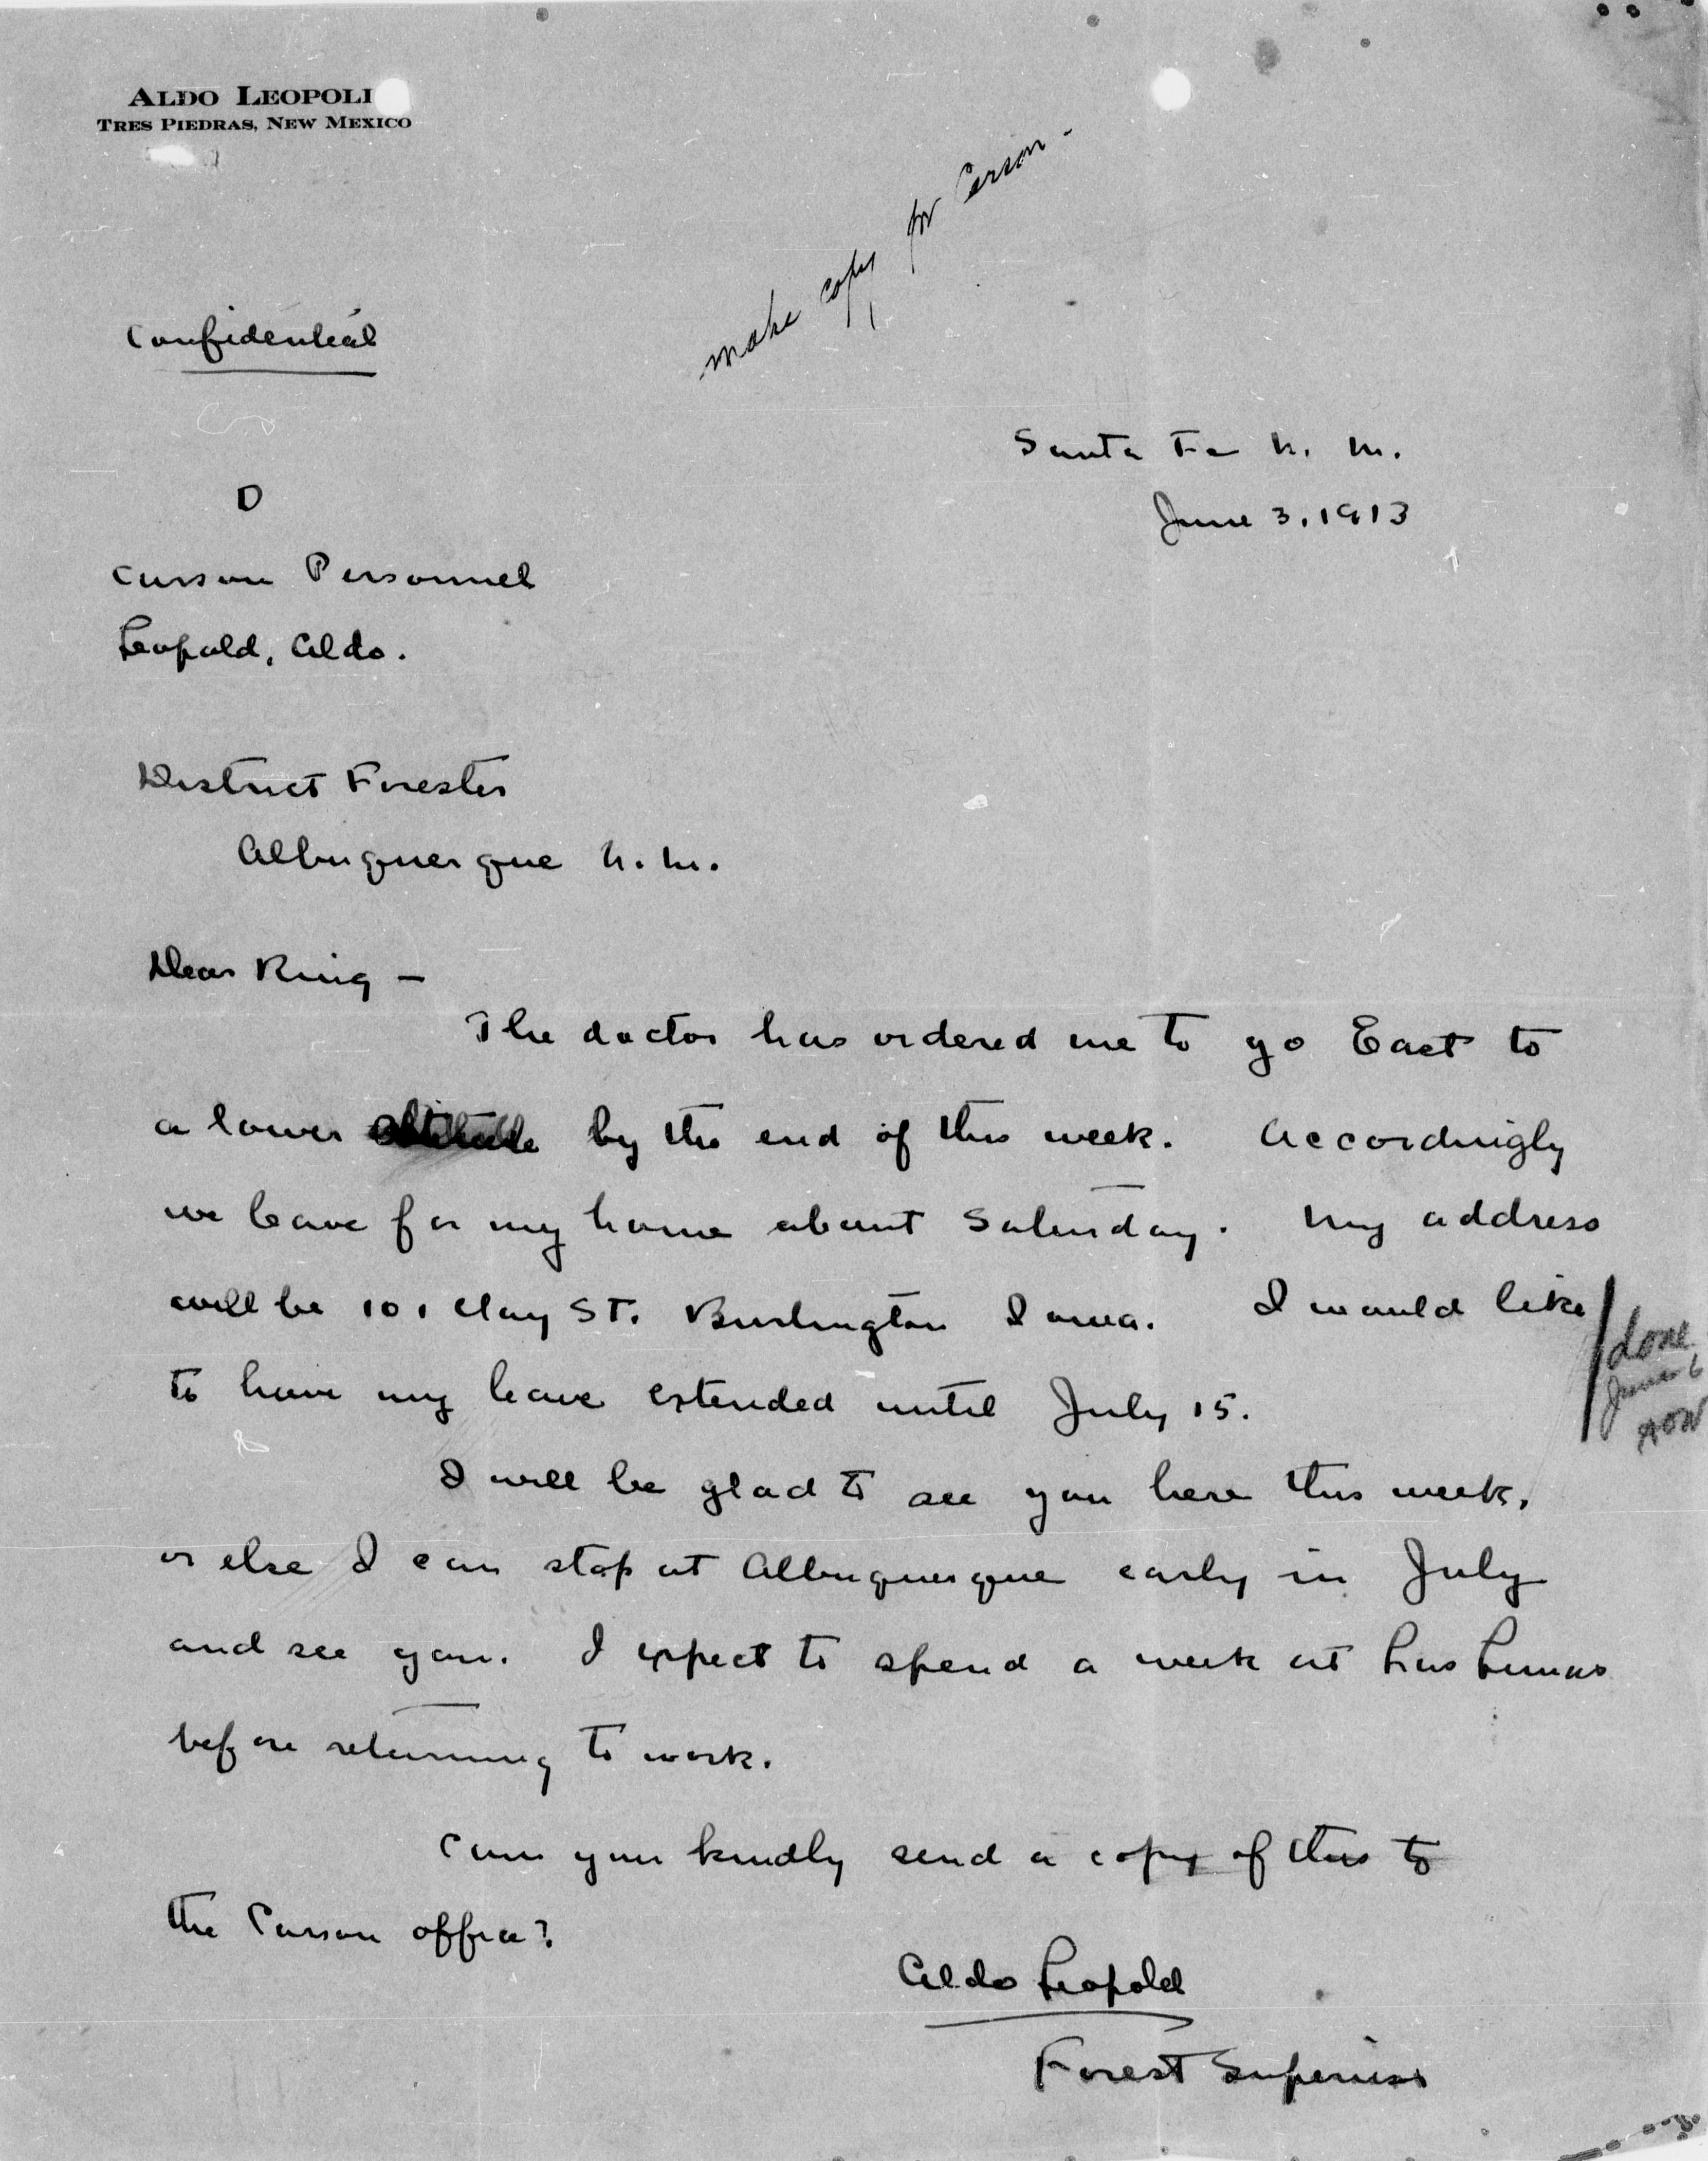 ALDO LEOPOL
TRES PIEDRAS, NEW MEXICO
make copy for Carson -
Confidential
Santa Fe N. M.
June 3, 1913
D
Carson Personnel
Leopold, Aldo.
District Forester
Albuquerque N. M.
Dear Ring –
The doctor has ordered me to go East to
a lower altitude by the end of this week. Accordingly
we leave for my home about Saturday. My address
will be 101 Clay St. Burlington Iowa. I would like
to have my leave extended until July 15.
done
June 6
AOW
I will be glad to see you here this week,
or else I can stop at Albuquerque early in July
and see you. I expect to spend a week at Los Lunas
before returning to work.
Can you kindly send a copy of this to
the Carson office?
Aldo Leopold
Forest Supervisor